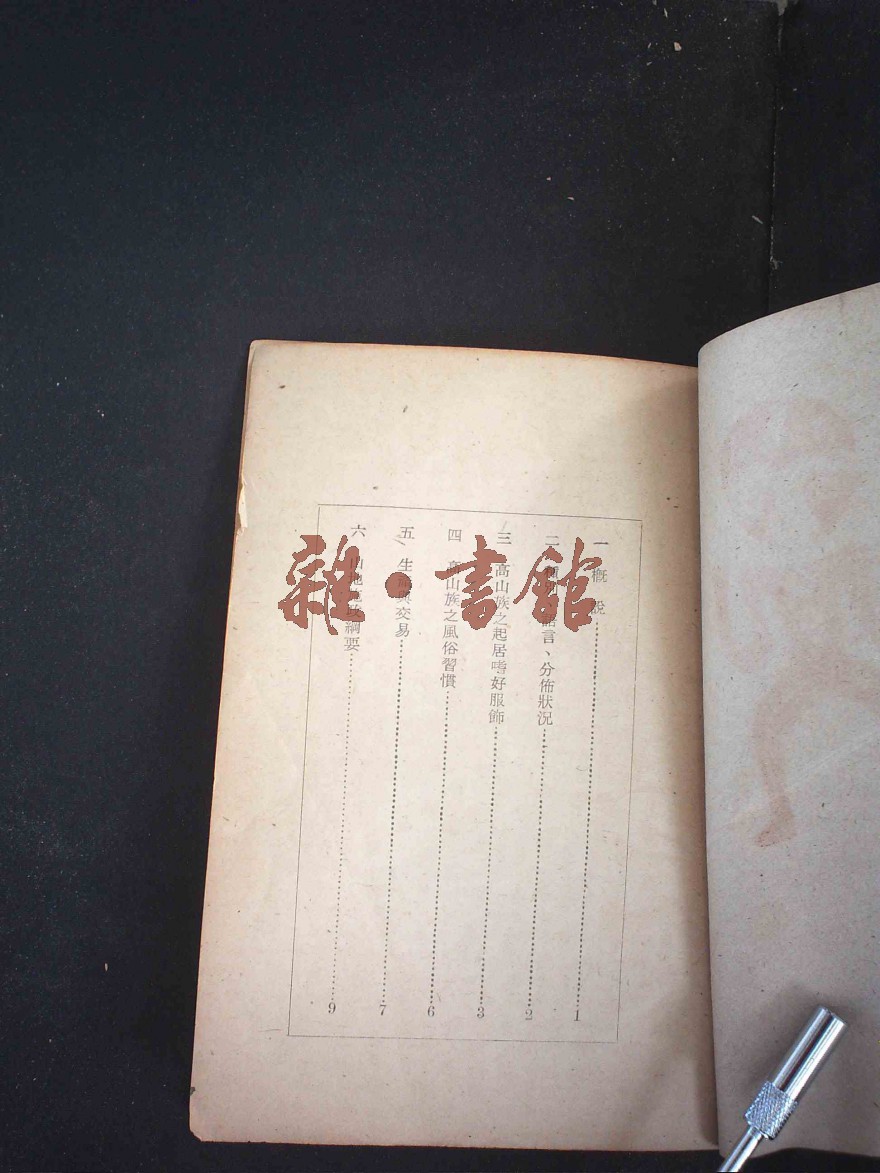 一 概說 1
二 語言、分佈狀況 2
三 高山族之起居嗜好服飾 3
四 高山族之風俗習慣 6
五 生 交易 7
六 山地 綱要 9
雜·書館